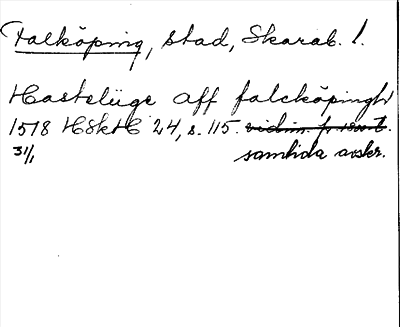 Falköping, stad, Skarab. l.
Hastelüge aff falcköpingh
1578 HSkH 24, s. 115.
31/1 samtida avskr.